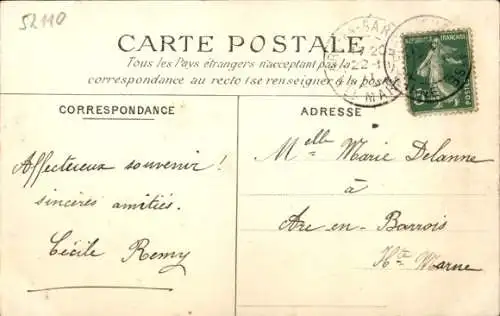 52110
CARTE POSTALE
Tous les Pays étrangers n'acceptant pas la
correspondance au recto (se renseigner à la poste
CORRESPONDANCE
ADRESSE
Affectueux souvenir !
sincères amitiés.
Cécile Remy
Melle Marie Delanne
à
Arc-en-Barrois
Hte Marne